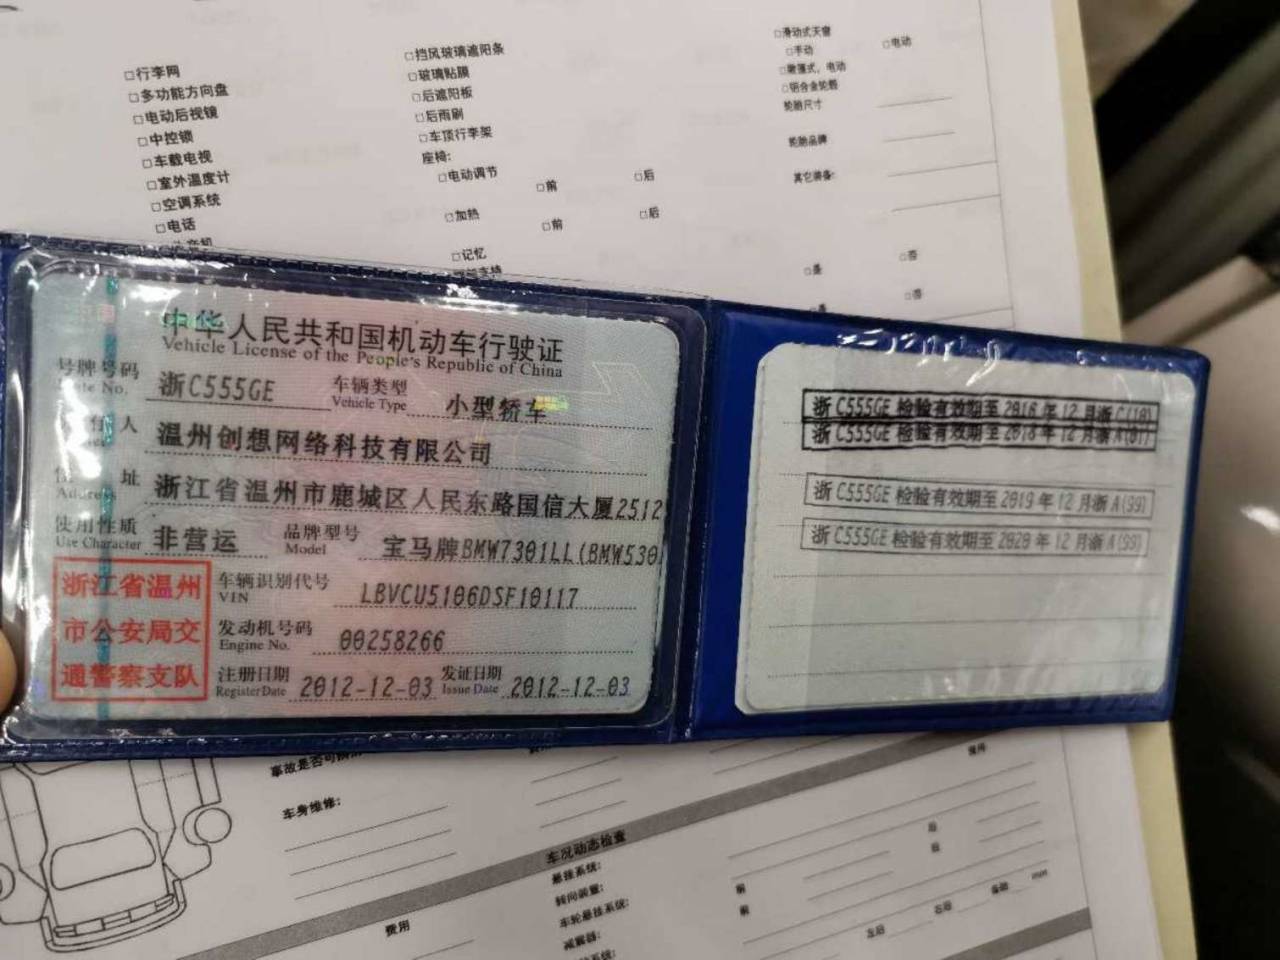 □行李网
□多功能方向盘
□电动后视镜
□中控锁
□车载电视
□室外温度计
□空调系统
□电话
□挡风玻璃遮阳条
□玻璃贴膜
□后遮阳板
□后雨刷
□车顶行李架
座椅:
□电动调节 □前 □后
□加热 □前 □后
□记忆
□滑动式天窗
□手动 □电动
□铝合金轮毂
轮胎尺寸
轮胎品牌
其它装备:
□是 □否
□否
中华人民共和国机动车行驶证
Vehicle License of the People's Republic of China
号牌号码 浙C555GE 车辆类型 小型轿车
Plate No. Vehicle Type
人 温州创想网络科技有限公司
住 址 浙江省温州市鹿城区人民东路国信大厦2512
Address
使用性质 非营运 品牌型号 宝马牌BMW7301LL(BMW530
Use Character Model
浙江省温州
市公安局交
通警察支队
车辆识别代号 LBVCU5106DSF10117
VIN
发动机号码 00258266
Engine No.
注册日期 2012-12-03 发证日期 2012-12-03
Register Date Issue Date
浙C555GE 检验有效期至 2016 年 12 月浙 C(10)
浙 C555GE 检验有效期至 2018 年 12 月浙 A(01)
浙 C555GE 检验有效期至 2019 年 12 月浙 A(99)
浙 C555GE 检验有效期至 2020 年 12 月浙 A(99)
车身维修:
车况动态检查
悬挂系统:
转向装置:
车轮悬挂系统:
减震器:
费用
费用
前 后
前 后
左后 右后 mm